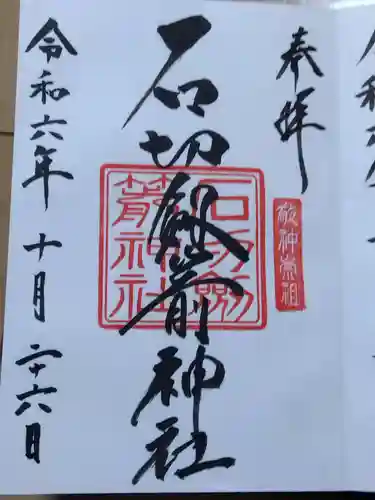 奉拝
敬神崇祖
石切劔箭神社
石切劔箭神社
令和六年十月二十六日